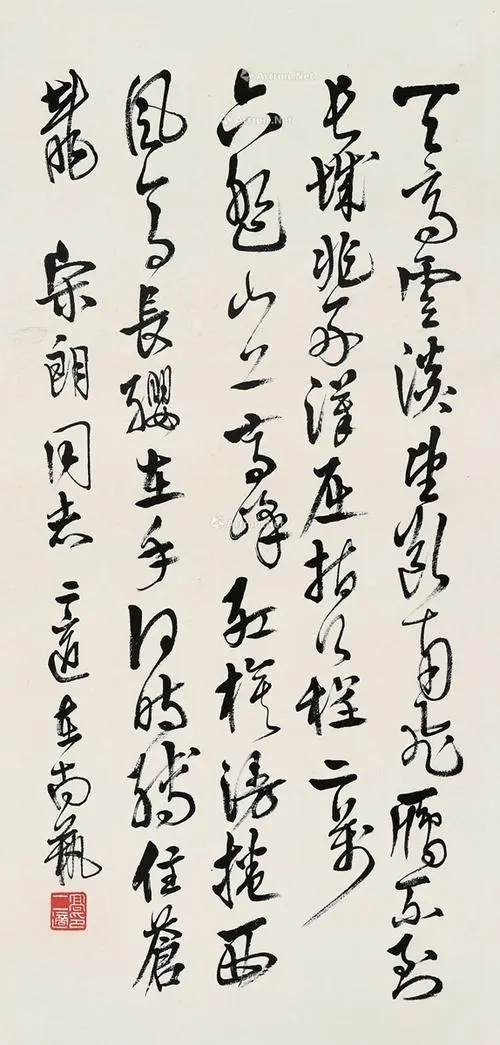 天高雲淡望斷南飛鴈不到
長城非好漢屈指行程二萬
六盤山上高峰紅旗漫捲西
風今日長纓在手何時縛住蒼
龍 宋朗同志 二適
Artron.Net
Artron.Net